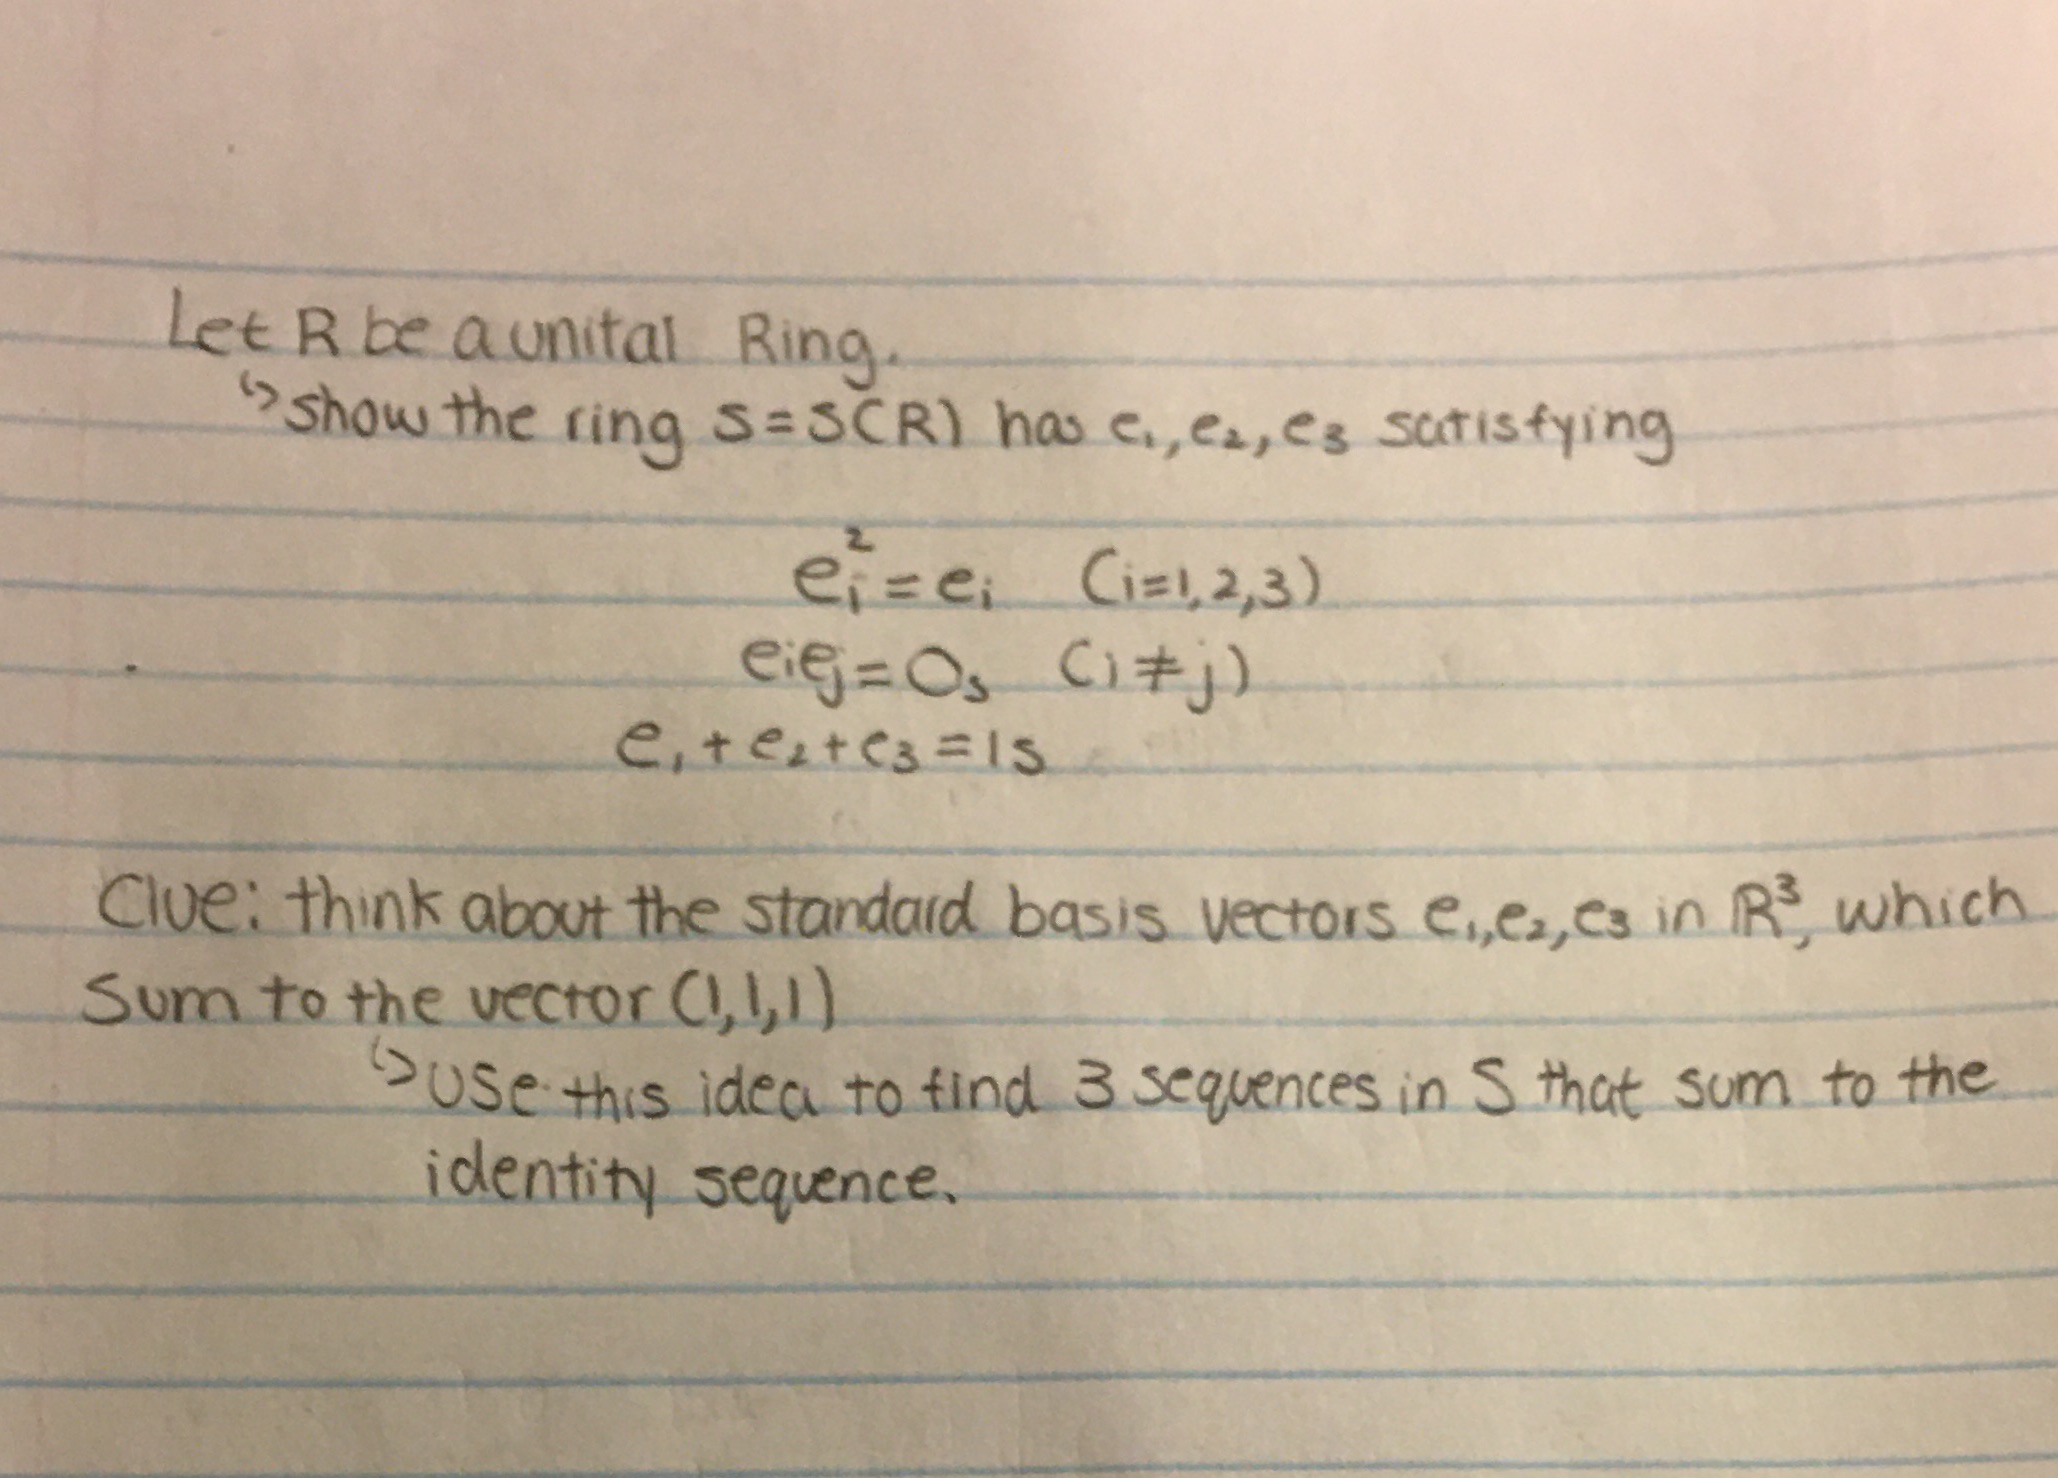 Let R be a unital Ring.
↳ show the ring S = S(R) has e₁, e₂, e₃ satisfying
eᵢ² = eᵢ (i=1,2,3)
eᵢeⱼ = 0ₛ (i ≠ j)
e₁ + e₂ + e₃ = 1s
Clue: think about the standard basis vectors e₁, e₂, e₃ in ℝ³, which
Sum to the vector (1,1,1)
↳ Use this idea to find 3 sequences in S that sum to the
identity sequence.